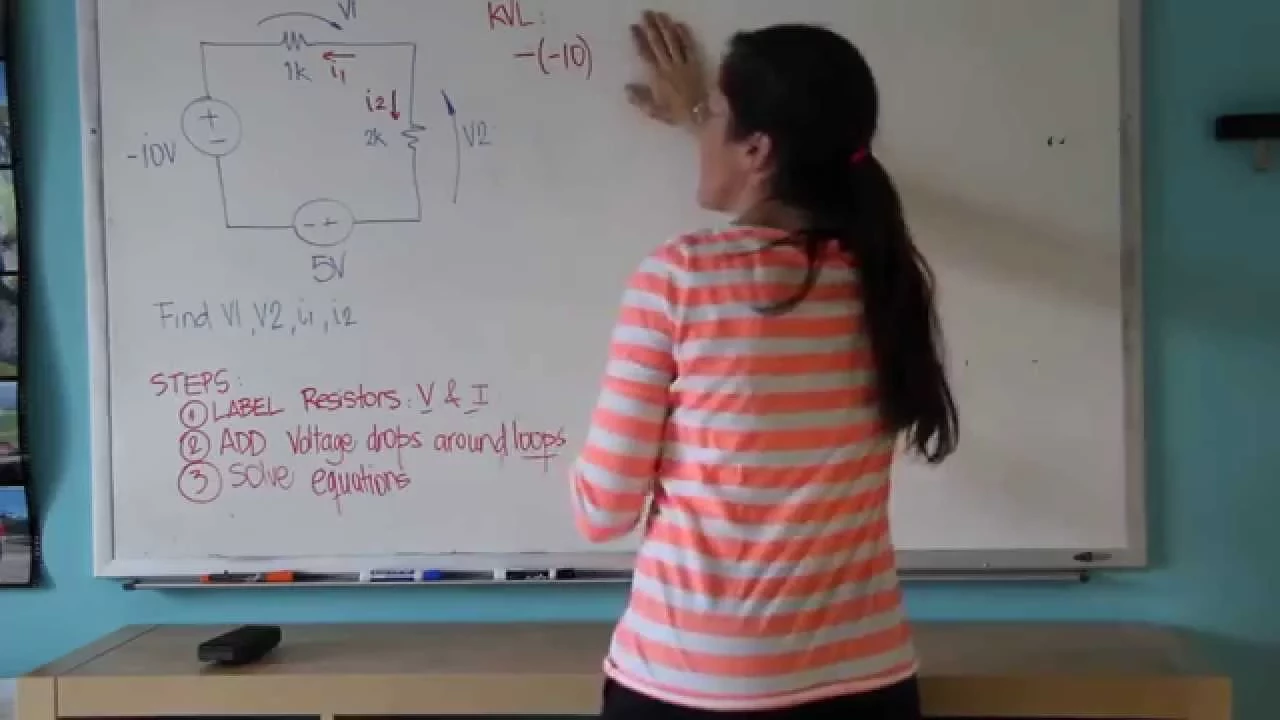 V1
KVL:
-(-10)
1k
i1
i2
2k
V2
+
-
-10V
- +
5V
Find V1, V2, i1, i2
STEPS:
1 LABEL Resistors: V & I
2 ADD Voltage drops around loops
3 Solve equations